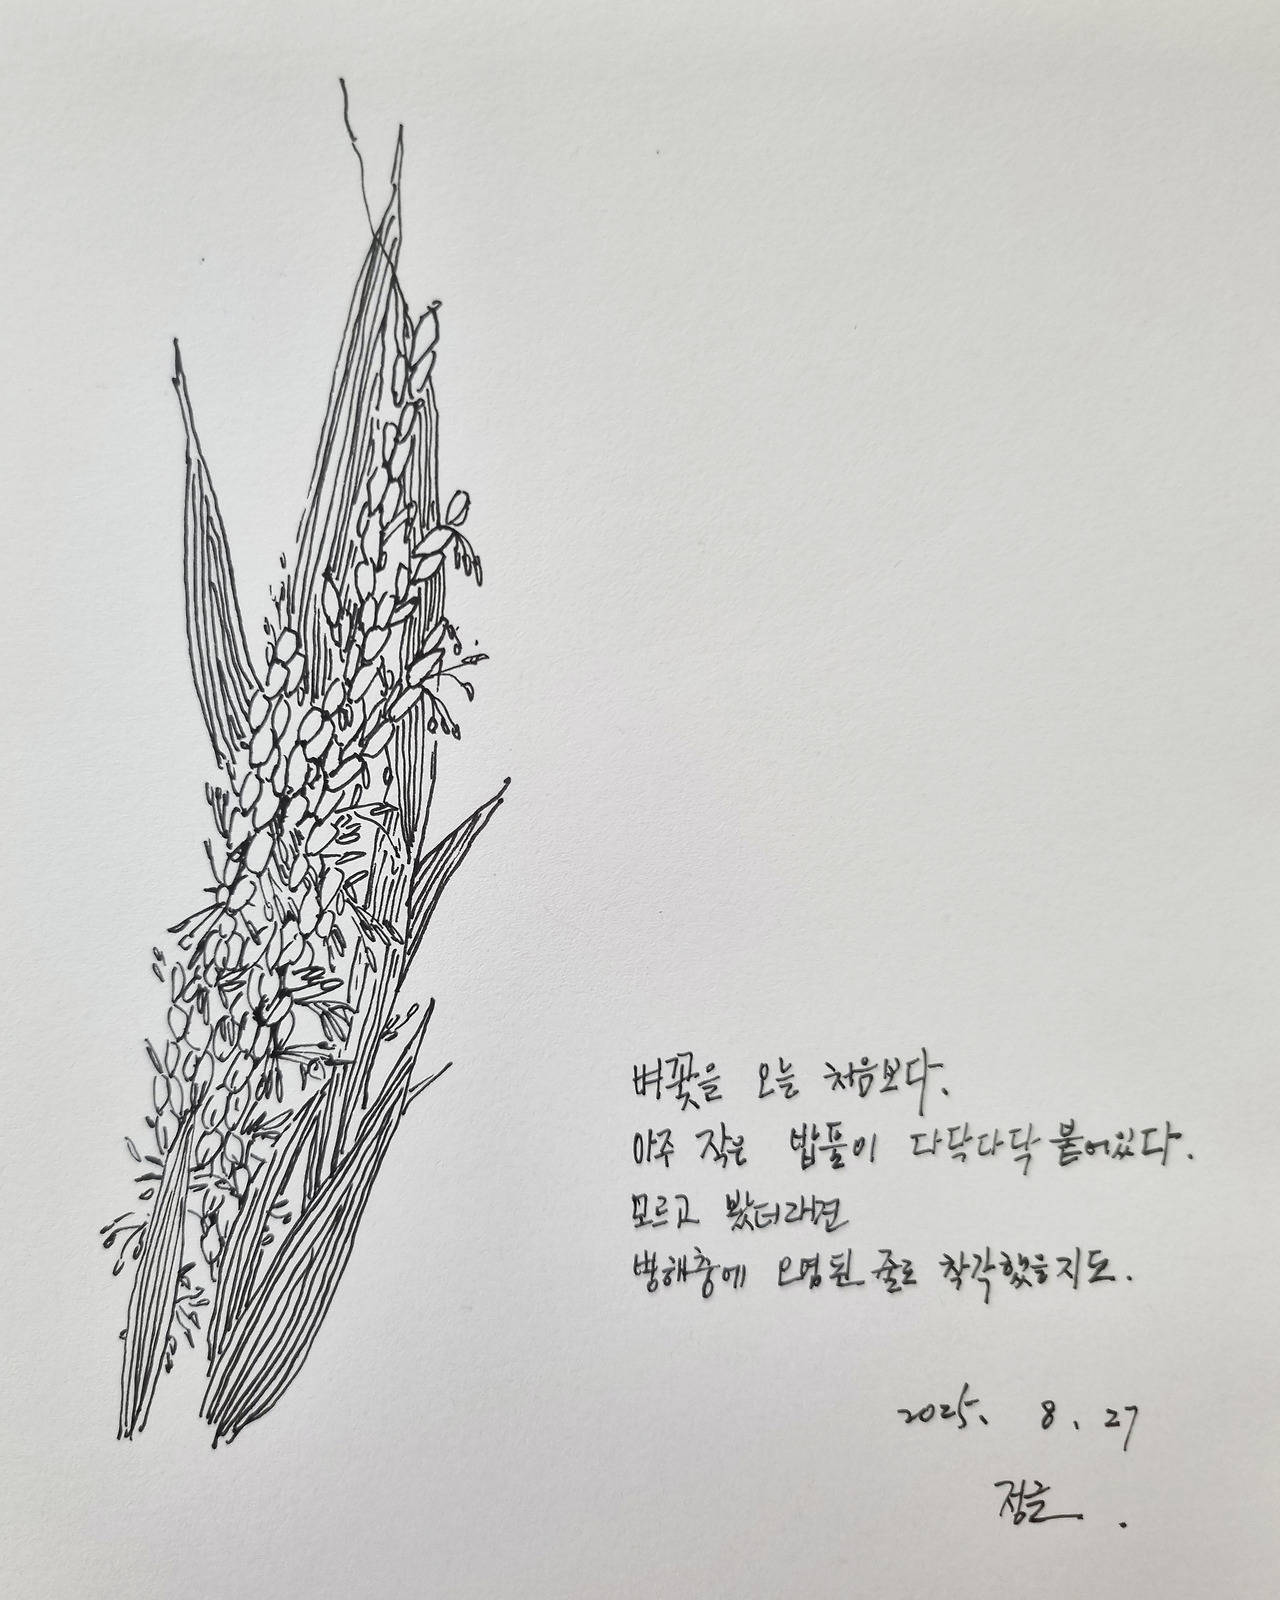 벼꽃을 오늘 처음보다.
아주 작은 밥풀이 다닥다닥 붙어있다.
모르고 봤더라면
병해충에 오염된 줄로 착각했을지도.
2025. 8. 27
정글.